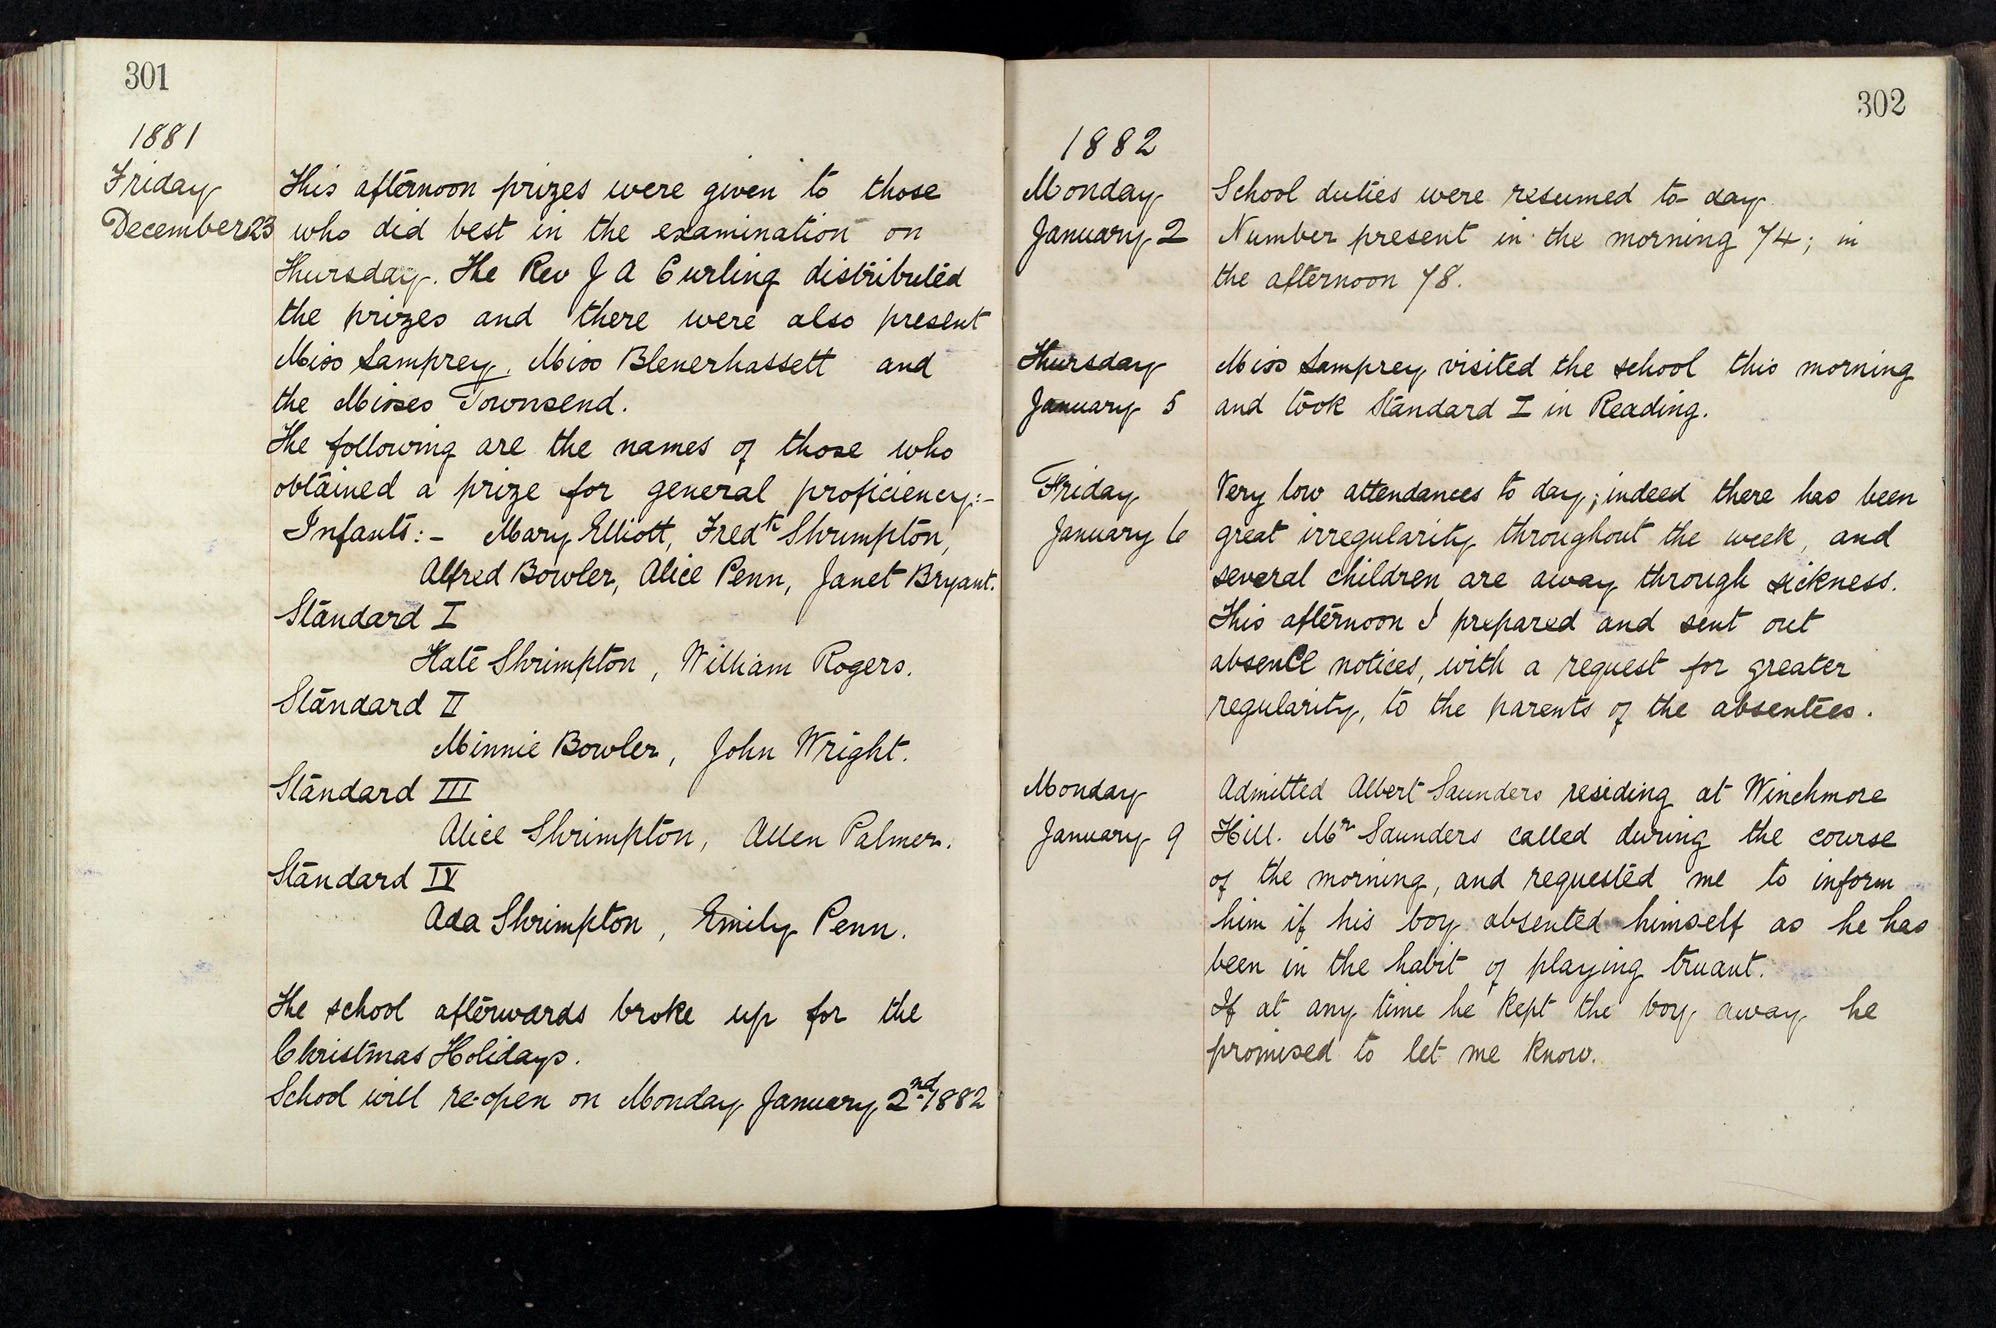 301
1881
Friday
December 23
This afternoon prizes were given to those
who did best in the examination on
Thursday. The Rev J A Curling distributed
the prizes and there were also present
Miss Lamprey, Miss Blenerhassett and
the Misses Townsend.
The following are the names of those who
obtained a prize for general proficiency:-
Infants:- Mary Elliott, Fredk Shrumpton,
Alfred Bowler, Alice Penn, Janet Bryant.
Standard I
Kate Shrimpton, William Rogers.
Standard II
Minnie Bowler, John Wright.
Standard III
Alice Shrimpton, Allen Palmer.
Standard IV
Ada Shrimpton, Emily Penn.
The school afterwards broke up for the
Christmas Holidays.
School will re-open on Monday January 2nd 1882
302
1882
Monday
January 2
School duties were resumed to day
Number present in the morning 74; in
the afternoon 78.
Thursday
January 5
Miss Lamprey visited the school this morning
and took Standard I in Reading.
Friday
January 6
Very low attendances to day; indeed there has been
great irregularity throughout the week, and
several children are away through sickness.
This afternoon I prepared and sent out
absence notices, with a request for greater
regularity, to the parents of the absentees.
Monday
January 9
Admitted Albert Saunders residing at Winchmore
Hill. Mr Saunders called during the course
of the morning, and requested me to inform
him if his boy absented himself as he has
been in the habit of playing truant.
If at any time he kept the boy away he
promised to let me know.